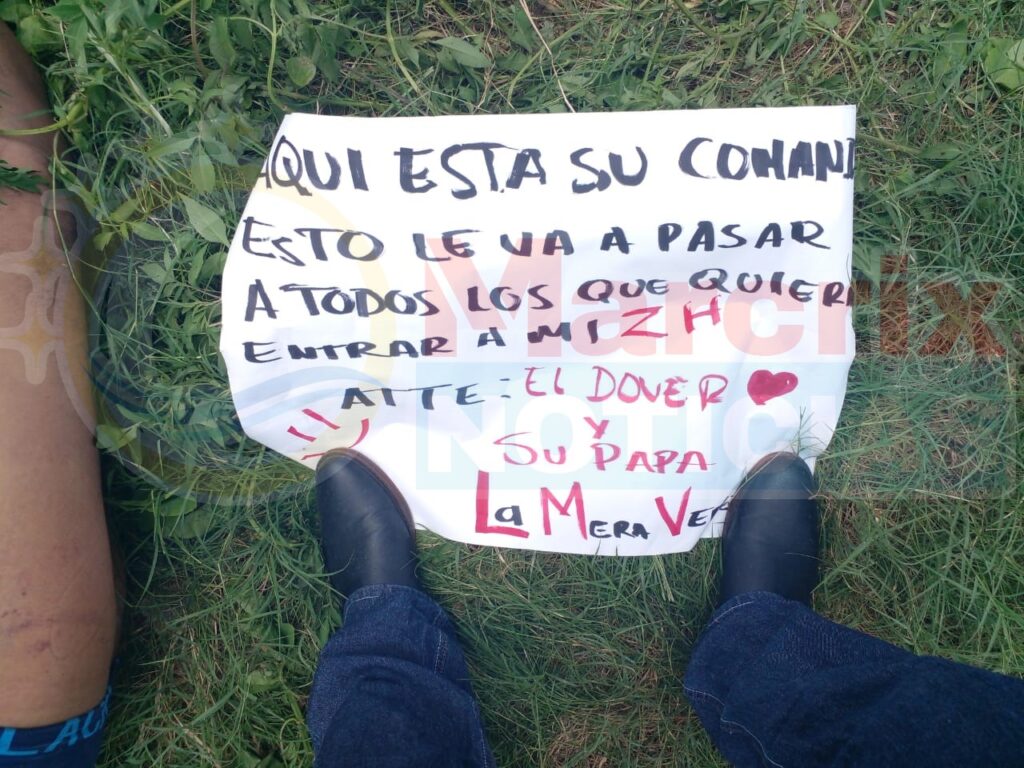 AQUI ESTA SU COMAND
ESTO LE VA A PASAR
A TODOS LOS QUE QUIERA
ENTRAR A MI ZH
ATTE: El DOVER
Y
SU PAPA
La MERA VER
Marcrix
NOTICI